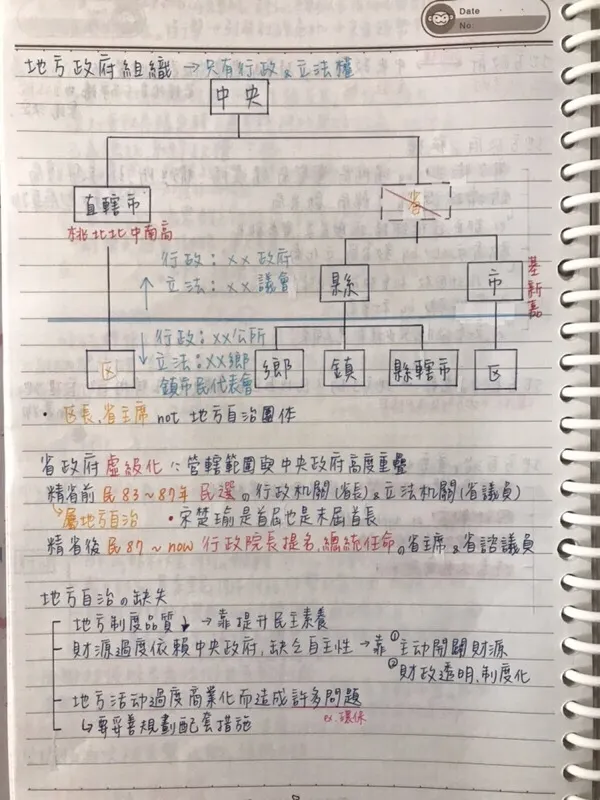 Date
No:
地方政府組織 →只有行政&立法權
中央
直轄市
省
桃北北中南高
行政:××政府
↑ 立法:××議會
縣
市
基新嘉
行政:××公所
↓ 立法:××鄉
鎮市民代表會
区
鄉
鎮
縣轄市
区
• 区長、省主席 not 地方自治團体
省政府虛級化 ∵管轄範圍與中央政府高度重疊
精省前 民83~87年 民選の行政机關(省長)&立法机關(省議員)
↳屬地方自治 •宋楚瑜是首屆也是末屆首長
精省後民87~now 行政院長提名,總統任命の省主席&省諮議員
地方自治の缺失
地方制度品質↓ →靠提升民主素養
財源過度依賴中央政府,缺乏自主性→靠①主動開闢財源
②財政透明、制度化
地方活動過度商業化而造成許多問題
↳要妥善規劃配套措施 ex.環保